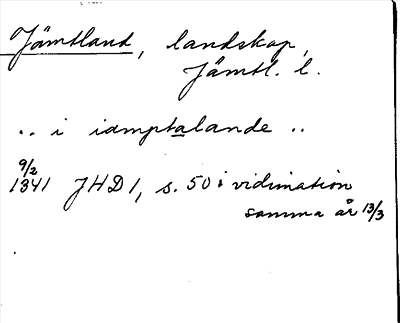 Jämtland, landskap,
Jämtl. l.
.. i iamptalande ..
9/2
1341 JHD 1, s. 50 i vidimation
samma år 13/3